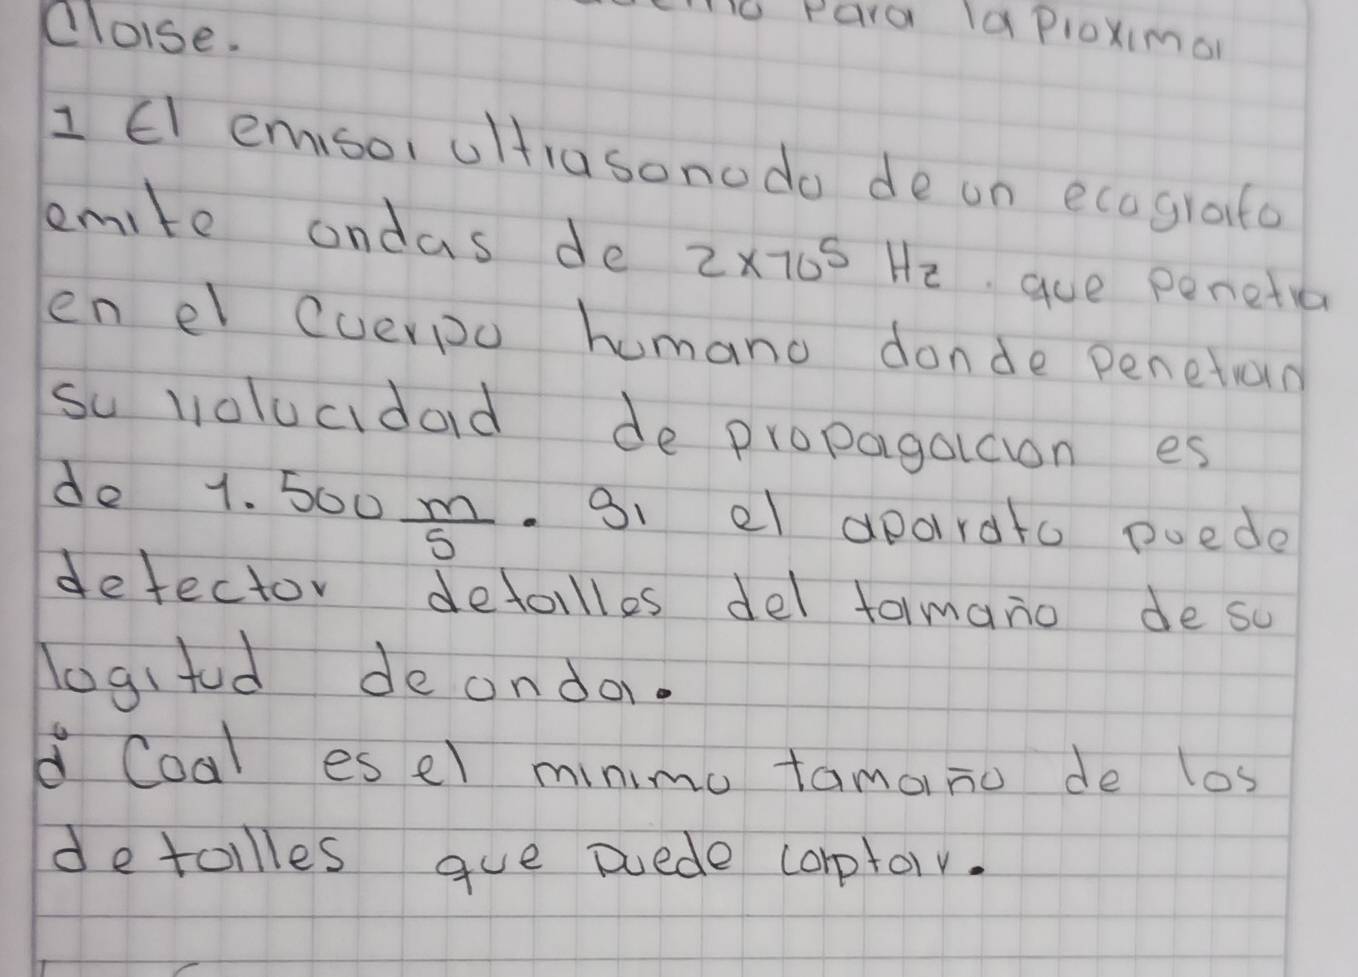 para la proxima
Clase.
1 El emisor ultrasonodo de un ecografo
emite ondas de 2x10⁵ Hz. que penetra
en el cuerpo humano donde penetran
su volucidad de propagacion es
de 1.500 m/s. Si el aparato puede
detector detalles del tamaño de su
logitud de onda.
¿ Coal es el minimo tamaño de los
detalles que puede captar.